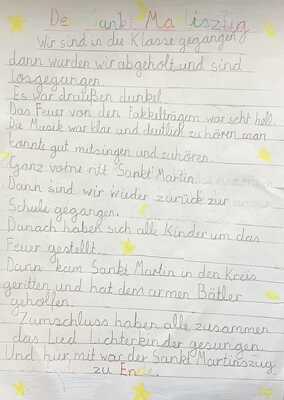 De Sankt Matiszug
Wir sind in die Klasse gegangen
dann wurden wir abgeholt und sind
losgegangen.
Es war draußen dunkel.
Das Feuer von den Fakkelträgern war seht hell.
Die Musik war klar und deutlich zu hören man
konnte gut mitsingen und zuhören.
Ganz vorne ritt Sankt Martin.
Dann sind wir wieder zurück zur
Schule gegangen.
Danach haben sich alle Kinder um das
Feuer gestellt.
Dann kam Sankt Martin in den Kreis
geritten und hat dem armen Bätler
gehollen.
Zumschluss haben alle zusammen
das Lied Lichterkinder gesungen.
Und hier mit war der Sankt Martinszug
zu Ende.